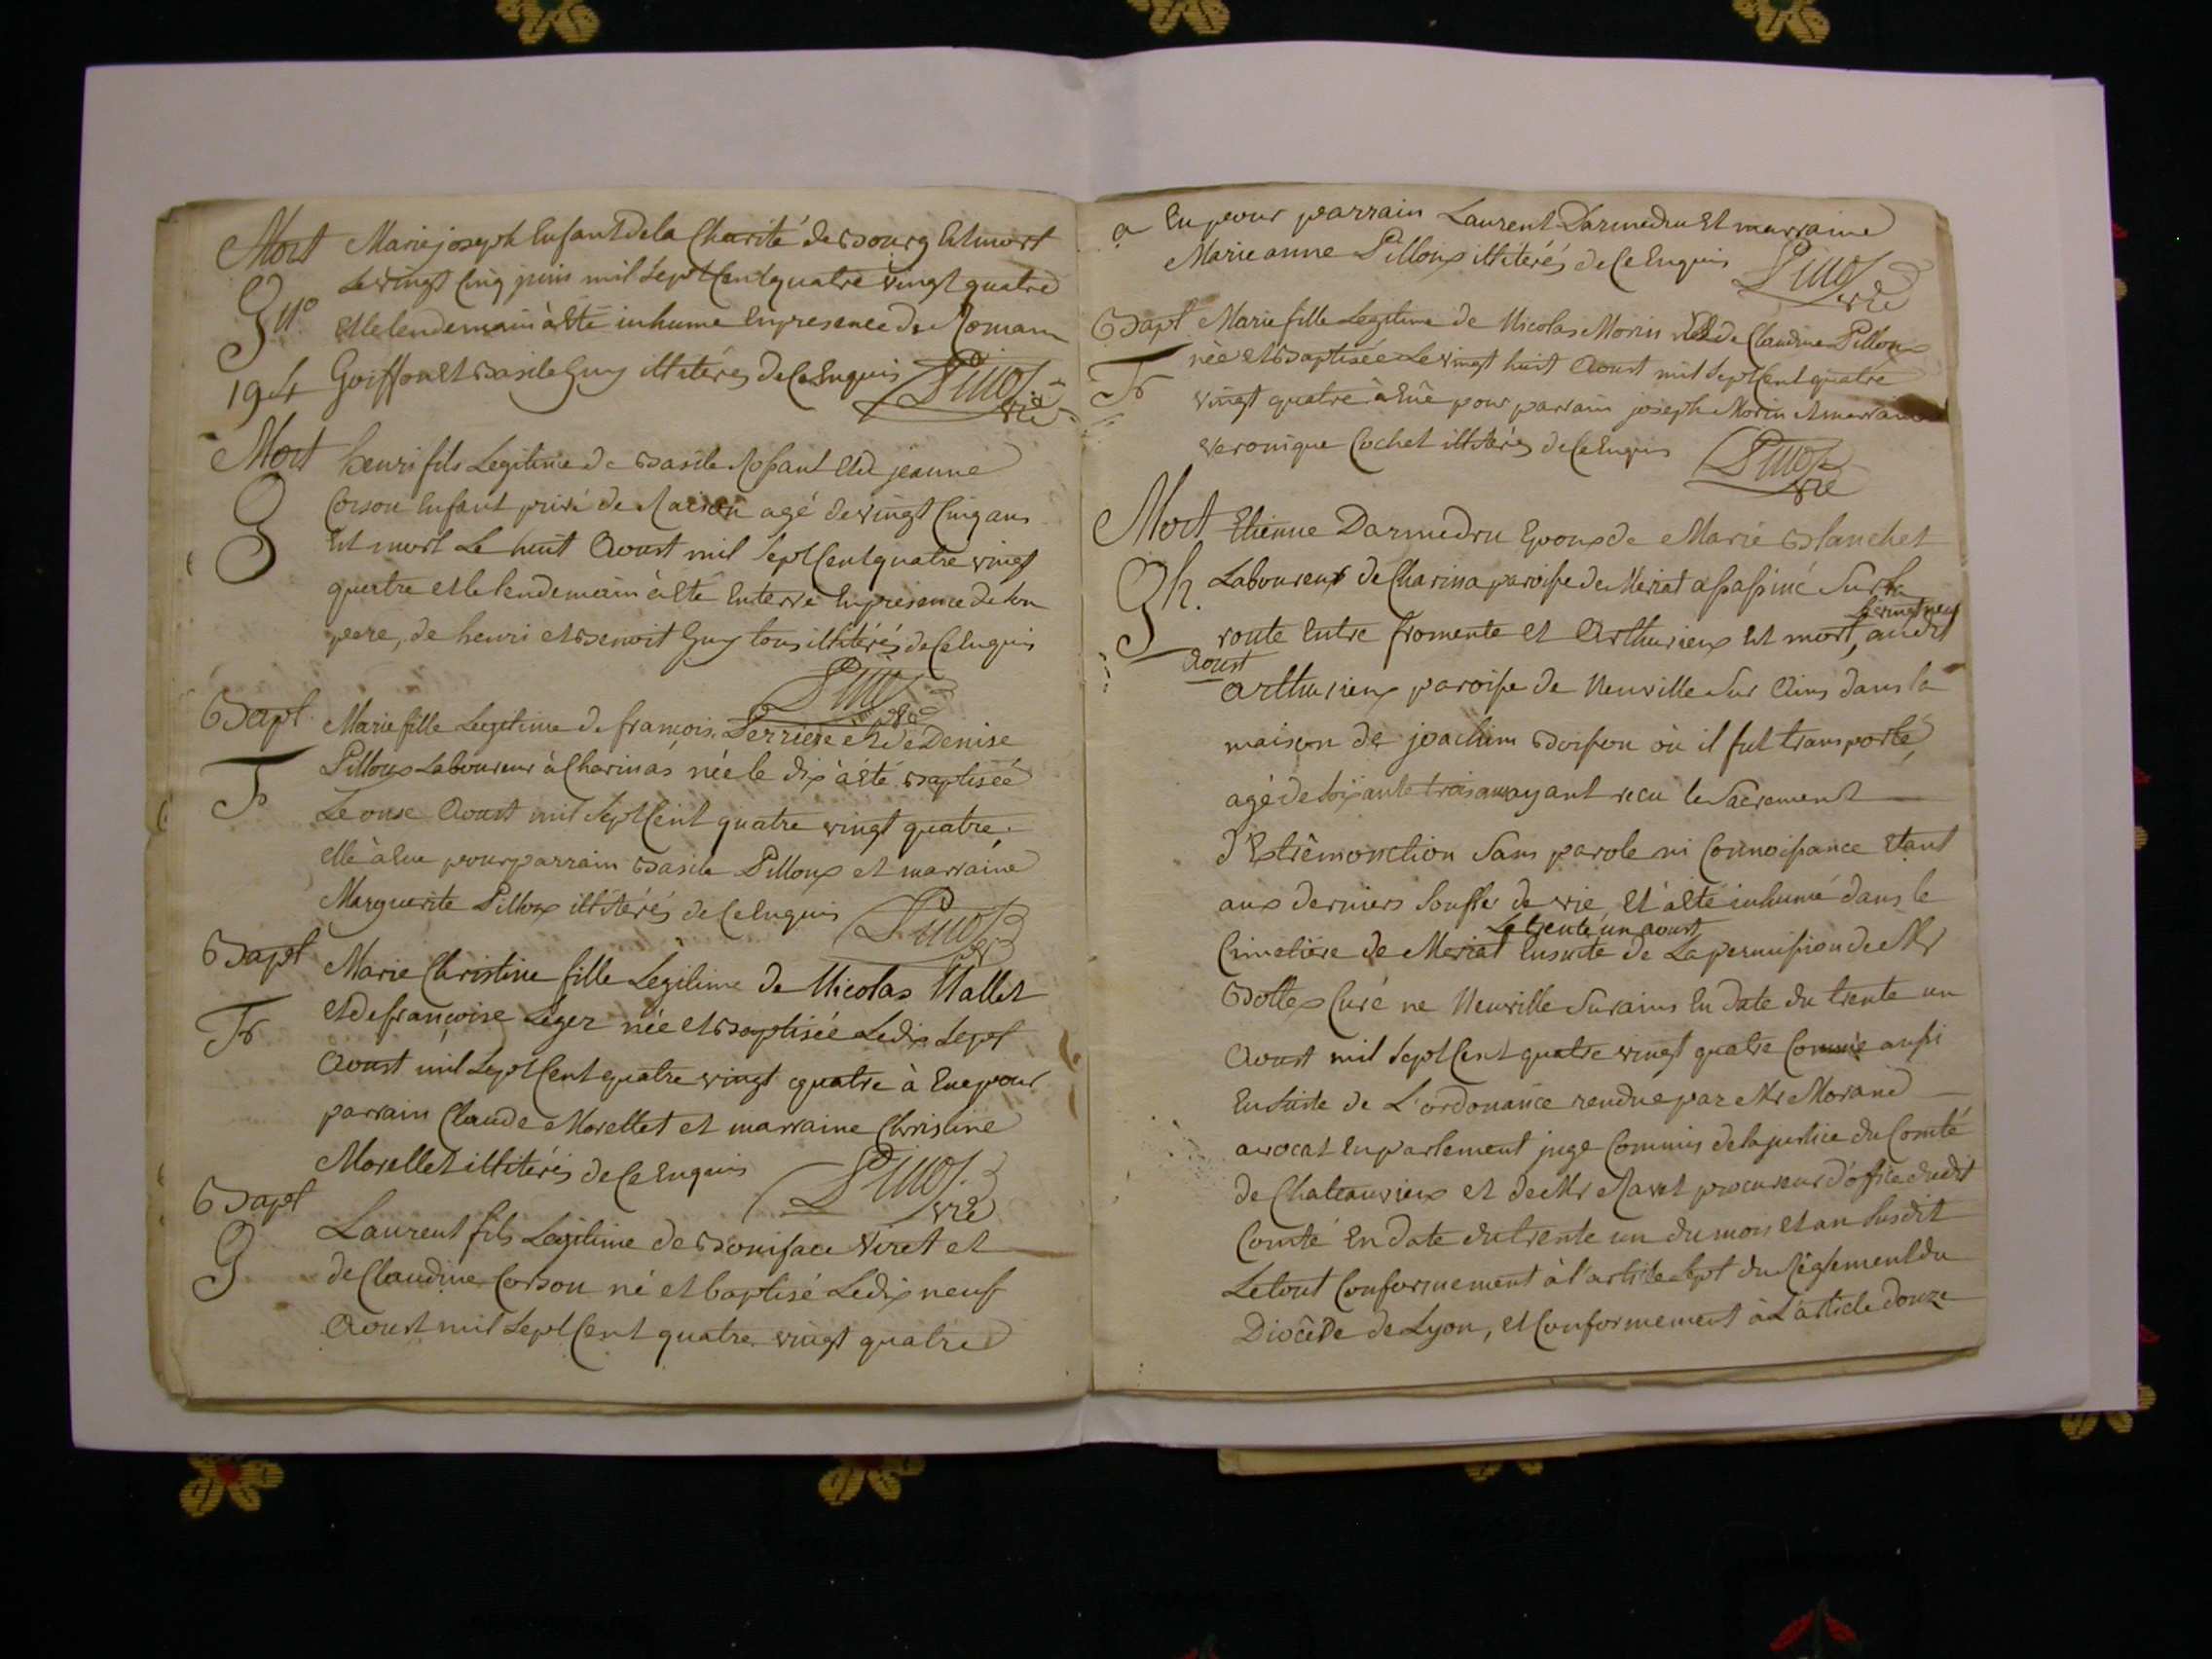 Mort Marie joseph Enfant de la Charité de Bourg Est mort
Le vingt Cinq juin mil Sept Cent quatre vingt quatre
G no Et le lendemain à Eté inhumé En presence de Romain
194 Goiffon Et Basile Guy illiterés de Ce Enquis
Mort henri fils Legitime de Basile Rossant Et de jeanne
G Corson Enfant privé de Raison agé de vingt Cinq ans
Est mort Le huit Aoust mil Sept Cent quatre vingt
quatre et le lendemain à Eté Enterré En presence de son
pere, de henri et Benoit Guy tous illiterés de Ce Enquis
Bapt Marie fille Legitime de françois Perriere et de Denise
F Pilloux Laboureur à Charinas née le dix à été Baptisée
Le onse Aoust mil Sept Cent quatre vingt quatre;
elle à Eue pour parrain Basile Pilloux et marraine
Marguerite Pilloux illiterés de Ce Enquis
Bapt Marie Christine fille Legitime de Nicolas Nallet
F et de françoise Leger née et Baptisée Le dix Sept
Aoust mil Sept Cent quatre vingt quatre à Eue pour
parrain Claude Morellet et marraine Christine
Morellet illiterés de Ce Enquis
Bapt
G Laurent fils Legitime de Boniface Viret et
de Claudine Corson né et baptisé Le dix neuf
Aoust mil Sept Cent quatre vingt quatre
a Eu pour parrain Laurent Darmedru Et marraine
Marie anne Pilloux illiterés de Ce Enquis
Bapt Marie fille Legitime de Nicolas Morin et de Claudine Pilloux
F née et Baptisée Le vingt huit Aoust mil Sept Cent quatre
vingt quatre à Eüe pour parrain joseph Morin et marraine
veronique Cochet illiterés de Ce Enquis
Mort Etienne Darmedru Epoux de Marie Blanchet
G h. Laboureur de Charina paroisse de Meriat assassiné Sur la
Le vingt neuf
route Entre fromente et Arthurieux Est mort, audit
Aoust
arthurieux paroisse de Neuville Sur Ains dans la
maison de joachim Boisson où il fut transporté,
agé de soixante trois ans ayant recu le Sacrement
d'Extrêmonction Sans parole ni Connoissance Etant
aux derniers Soufles de vie Et à Eté inhumé dans le
Le trente un aoust
Cimetiere de Meriat Ensuite de La permission de Mr
Bottex Curé ne Neuville Sur ains En date du trente un
Aoust mil Sept Cent quatre vingt quatre Comme aussi
Ensuite de L'ordonance rendue par Mr Morand
avocat En parlement juge Commis de la justice du Comté
de Chateauvieux et de Mr Ravet procureur d'office dudit
Comté En date du trente un du mois et an Susdit
Le tout Conformement à l'article Sept du Réglement du
Diocèse de Lyon, et Conformement à L'article douze